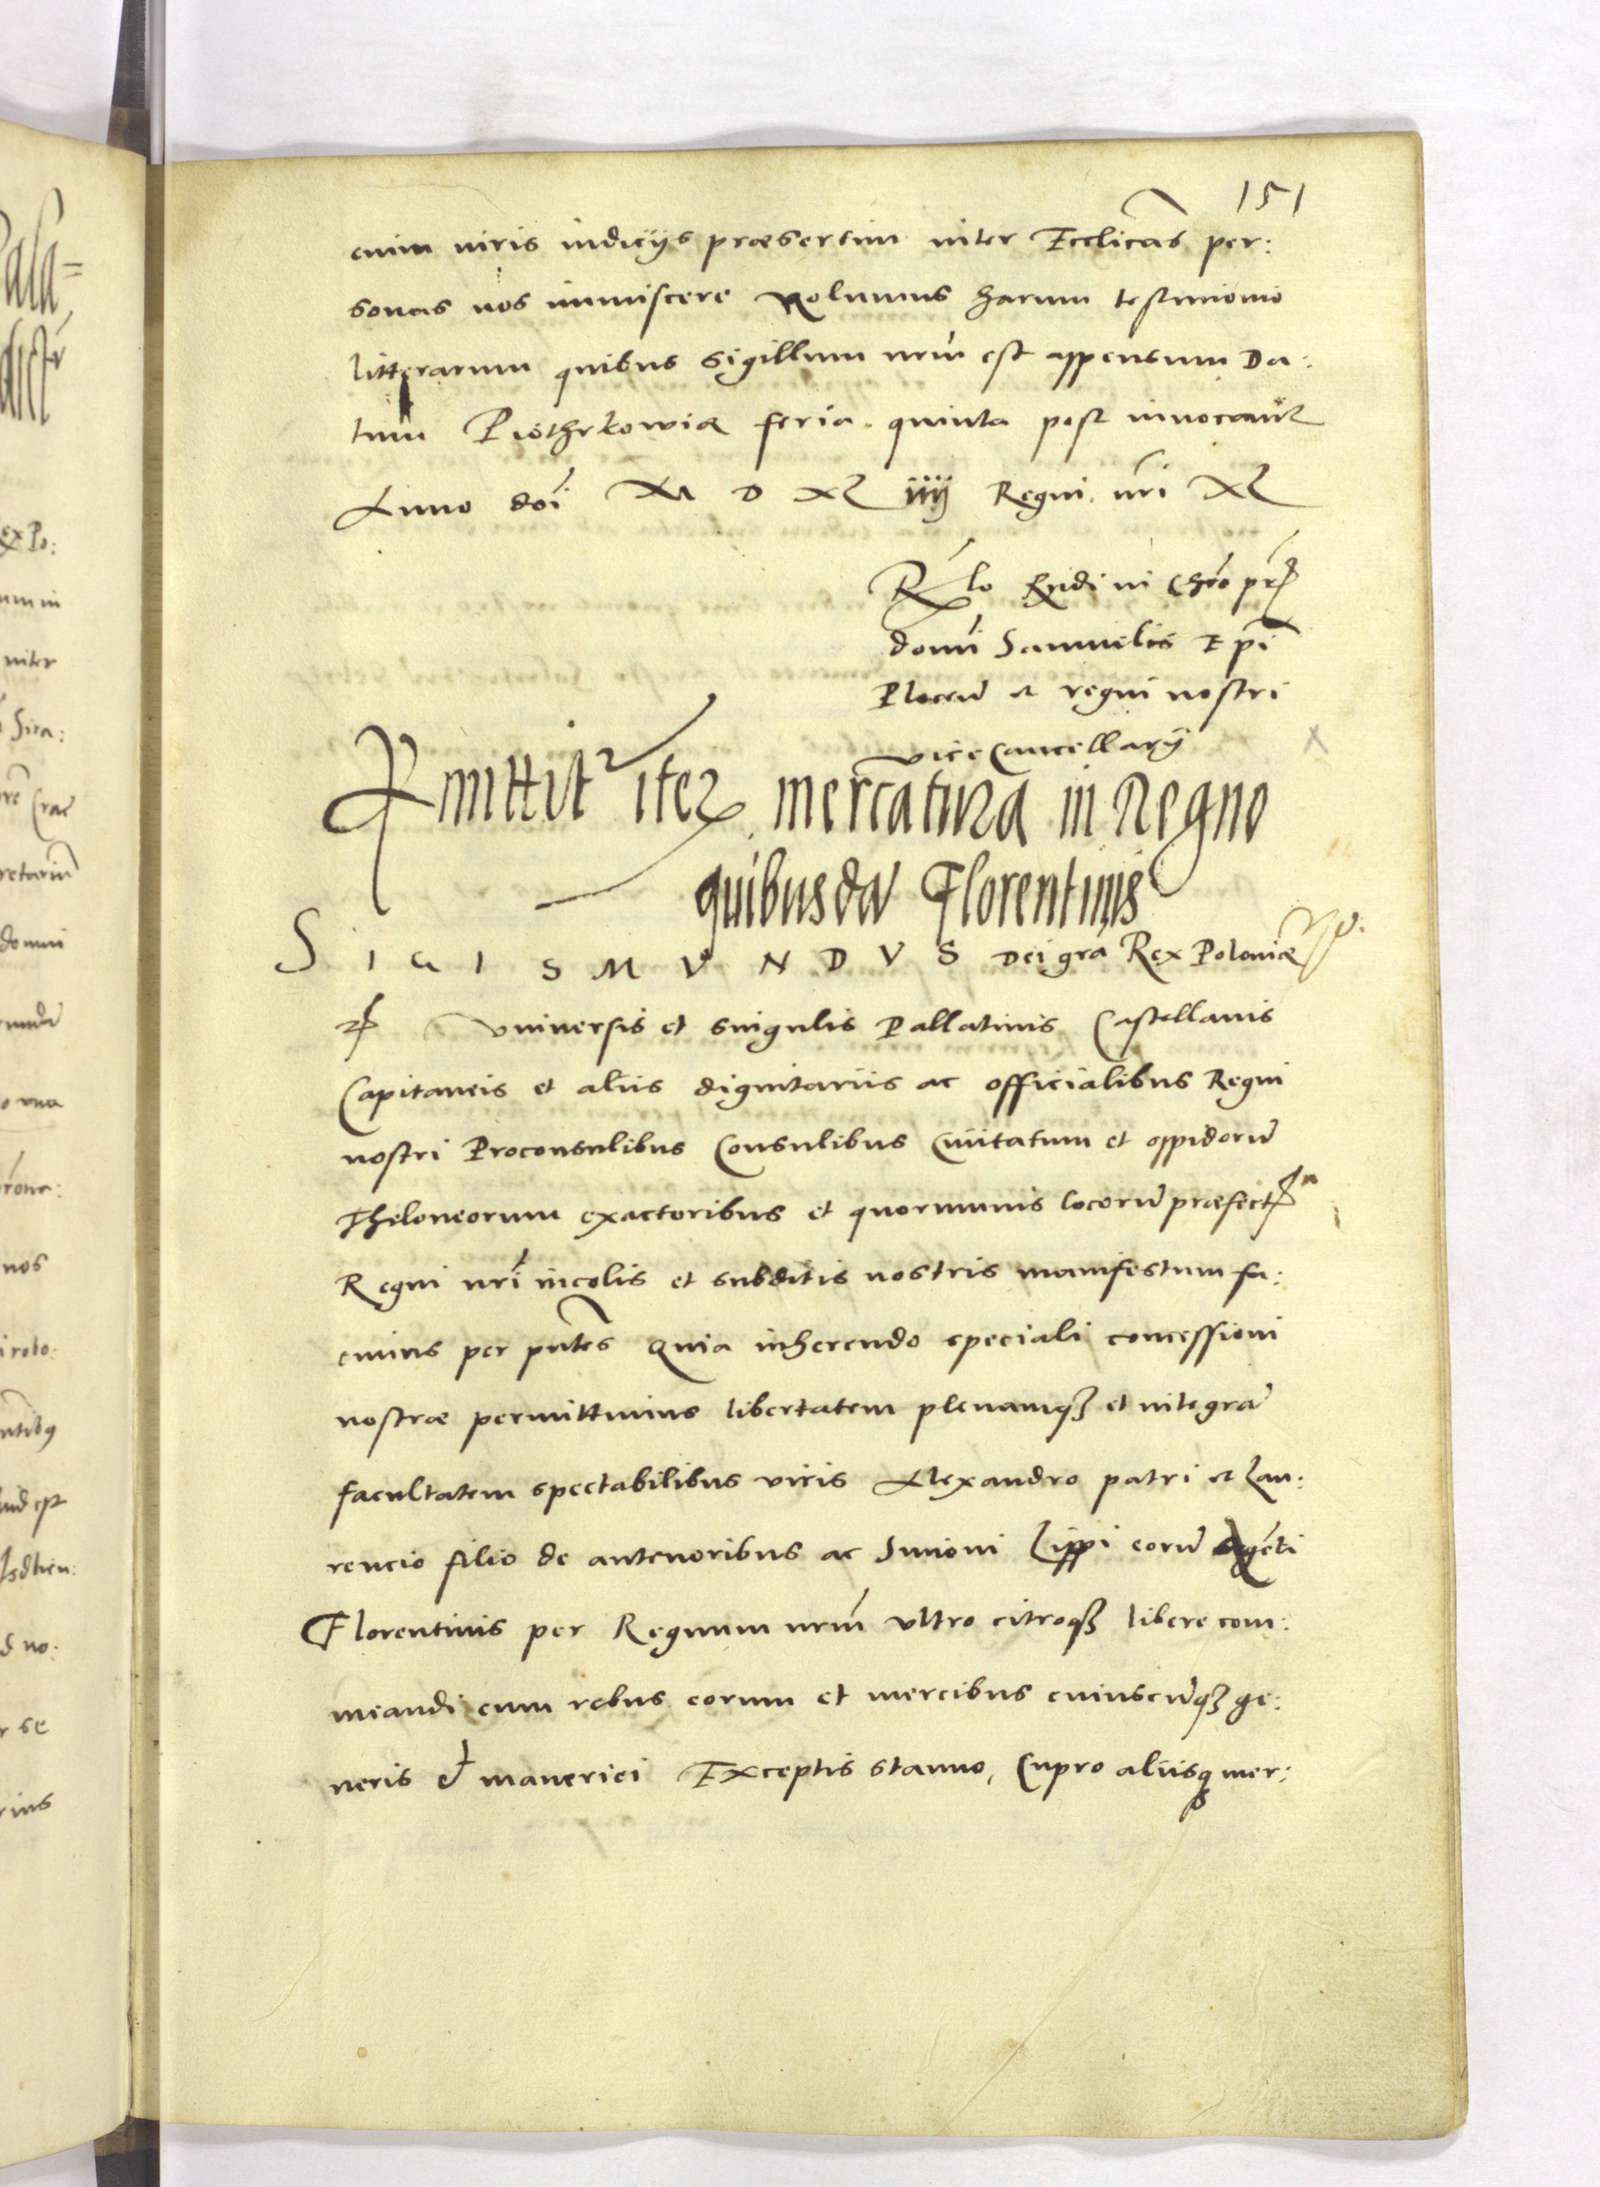 151
enim iuris indicijs præsertim inter Ecclicas per:
sonas nos immiscere Nolumus harum testimonio
litterarum quibus sigillum nrm est appensum Da:
tum Piothrkowiæ feria quinta post invocavit
Anno doi M D XL iiij Regni nri XL
Rlo Rndi in Chro pris
domi Samuelis Epi
Plocen et regni nostri
vice Cancellarij
Pmittitr iter mercatura in Regno
quibusda Florentinis
SIGISMVNDVS Dei gra Rex Poloniæ
Universis et singulis Pallatinis Castellanis
Capitaneis et aliis dignitariis ac officialibus Regni
nostri Proconsulibus Consulibus Civitatum et oppidoru
Theloneorum exactoribus et quorumvis locoru præfectis
Regni nri incolis et subditis nostris manifestum fa:
cimus per pntes Quia inherendo speciali concessioni
nostræ permittimus libertatem plenamq3 et integra
facultatem spectabilibus viris Alexandro patri et Lau:
rencio filio de antenoribus ac Simoni Lippi eoru agenti
Florentinis per Regnum nrm ultro citroq3 libere com:
meandi cum rebus eorum et mercibus cuiuscuq3 ge:
neris et maneriei Exceptis stanno, Cupro aliisq mer: